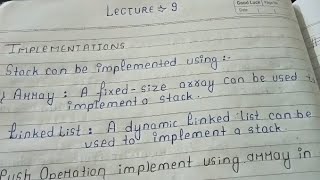 LECTURE :- 9
Good Luck
Date
IMPLEMENTATIONS
Stack can be implemented using :-
Array : A fixed-size array can be used to
implement a stack.
Linked List : A dynamic linked list can be
used to implement a stack.
Push Operation implement using array in